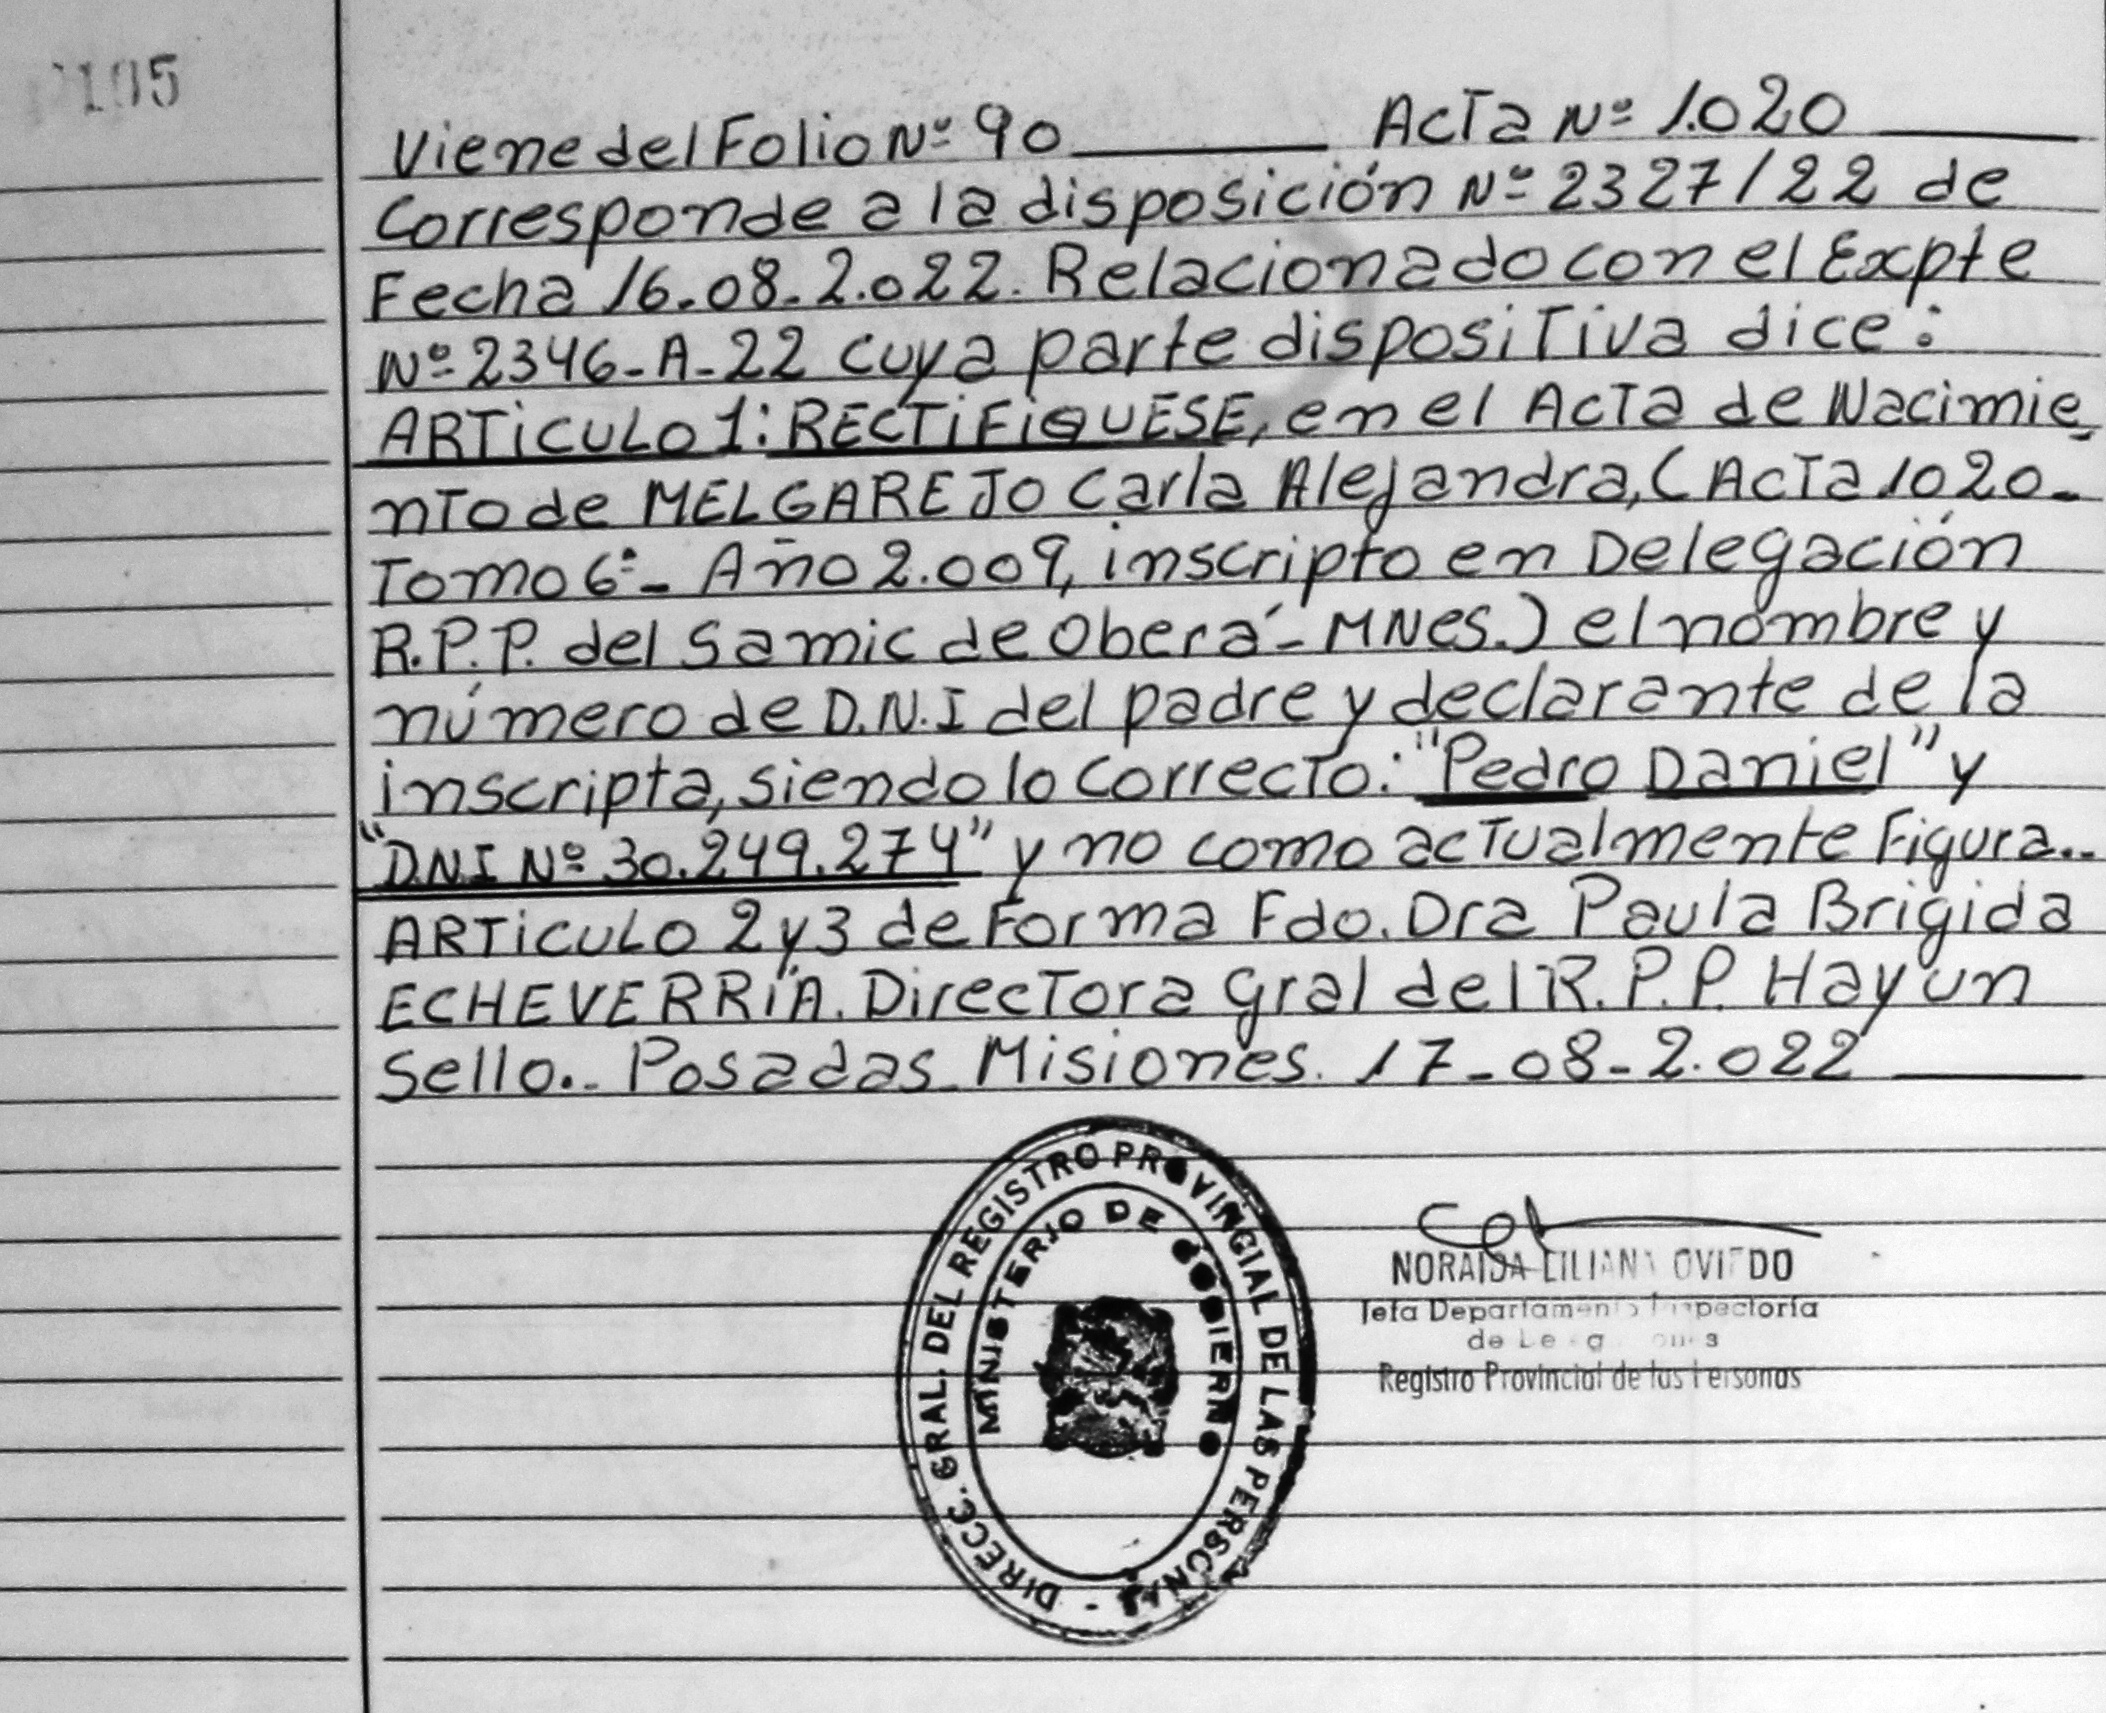 105
Viene del Folio Nº 90 ______ Acta Nº 1.020 ______
Corresponde a la disposición Nº 2327/22 de
Fecha 16-08-2.022. Relacionado con el Expte
Nº 2346-A-22 cuya parte dispositiva dice:
ARTiCULO 1: RECTiFiQUESE, en el Acta de Nacimie-
nto de MELGAREJO Carla Alejandra, (Acta 1020-
Tomo 6º- Año 2.009, inscripto en Delegación
R.P.P. del Samic de Oberá - MNes.) el nombre y
número de D.N.I del padre y declarante de la
inscripta, siendo lo correcto: "Pedro Daniel" y
"D.N.I Nº 30.249.274" y no como actualmente Figura..
ARTiCULO 2 y 3 de Forma Fdo. Dra Paula Brigida
ECHEVERRÍA. Directora Gral del R.P.P. Hay un
Sello.- Posadas Misiones. 17-08-2.022 ______
DIRECC. GRAL. DEL REGISTRO PROVINCIAL DE LAS PERSONAS -
MINISTERIO DE GOBIERNO
NORAIDA LILIANA OVIEDO
Jefa Departamento Inspectoría
de
Registro Provincial de las Personas